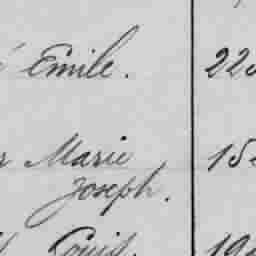 Emile. 22
Marie 15
Joseph.
Louis. 19